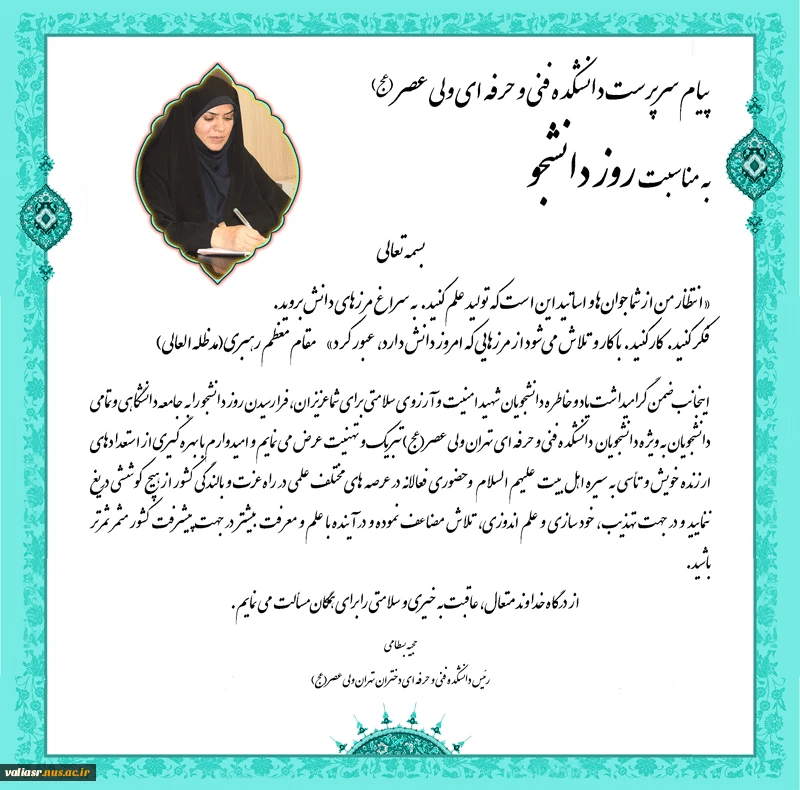 پیام سرپرست دانشکده فنی و حرفه ای ولی عصر (عج)
به مناسبت روز دانشجو
بسمه تعالی
«انتظار من از شما جوان‌ها و اساتید این است که تولید علم کنید. به سراغ مرزهای دانش بروید.
فکر کنید. کار کنید. با کار و تلاش می‌شود از مرزهایی که امروز دانش دارد، عبور کرد» مقام معظم رهبری (مدظله العالی)
اینجانب ضمن گرامیداشت یاد و خاطره دانشجویان شهید امنیت و آرزوی سلامتی برای شما عزیزان، فرارسیدن روز دانشجو را به جامعه دانشگاهی و تمامی
دانشجویان به ویژه دانشجویان دانشکده فنی و حرفه ای تهران ولی عصر (عج) تبریک و تهنیت عرض می نمایم و امیدوارم با بهره گیری از استعدادهای
ارزنده خویش و تأسی به سیره اهل بیت علیهم السلام و حضوری فعالانه در عرصه های مختلف علمی در راه عزت و بالندگی کشور از هیچ کوششی دریغ
ننمایید و در جهت تهذیب، خودسازی و علم اندوزی، تلاش مضاعف نموده و در آینده با علم و معرفت بیشتر در جهت پیشرفت کشور مثمر ثمرتر
باشید.
از درگاه خداوند متعال، عاقبت به خیری و سلامتی را برای همگان مسألت می نمایم.
حجیه بسطامی
رئیس دانشکده فنی و حرفه ای دختران تهران ولی عصر (عج)
valiasr.nus.ac.ir